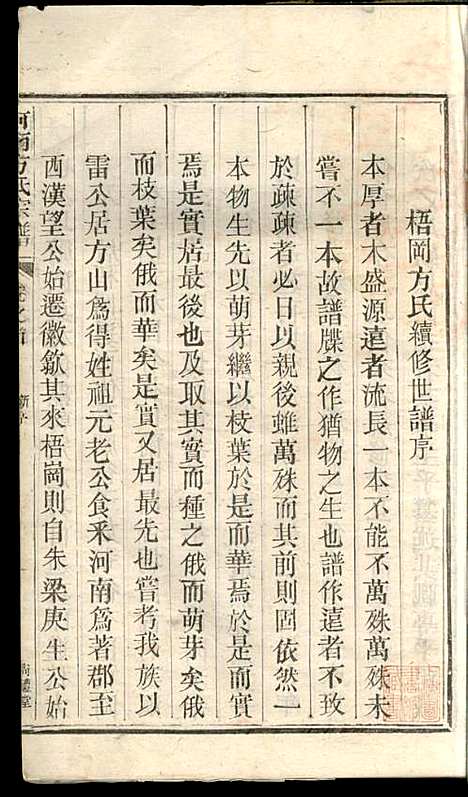 梧岡方氏續修世譜序
本厚者木盛源遠者流長一本不能不萬殊萬殊未
嘗不一本故譜牒之作猶物之生也譜作遠者不致
於疎疎者必日以親後雖萬殊而其前則固依然一
本物生先以萌芽繼以枝葉於是而華焉於是而實
焉是實居最後也及取其實而種之俄而萌芽矣俄
而枝葉矣俄而華矣是實又居最先也嘗考我族以
雷公居方山為得姓祖元老公食釆河南為著郡至
西漢望公始遷徽歙其來梧崗則自朱梁庚生公始
河南方氏宗譜
卷之首
新序
尚禮堂